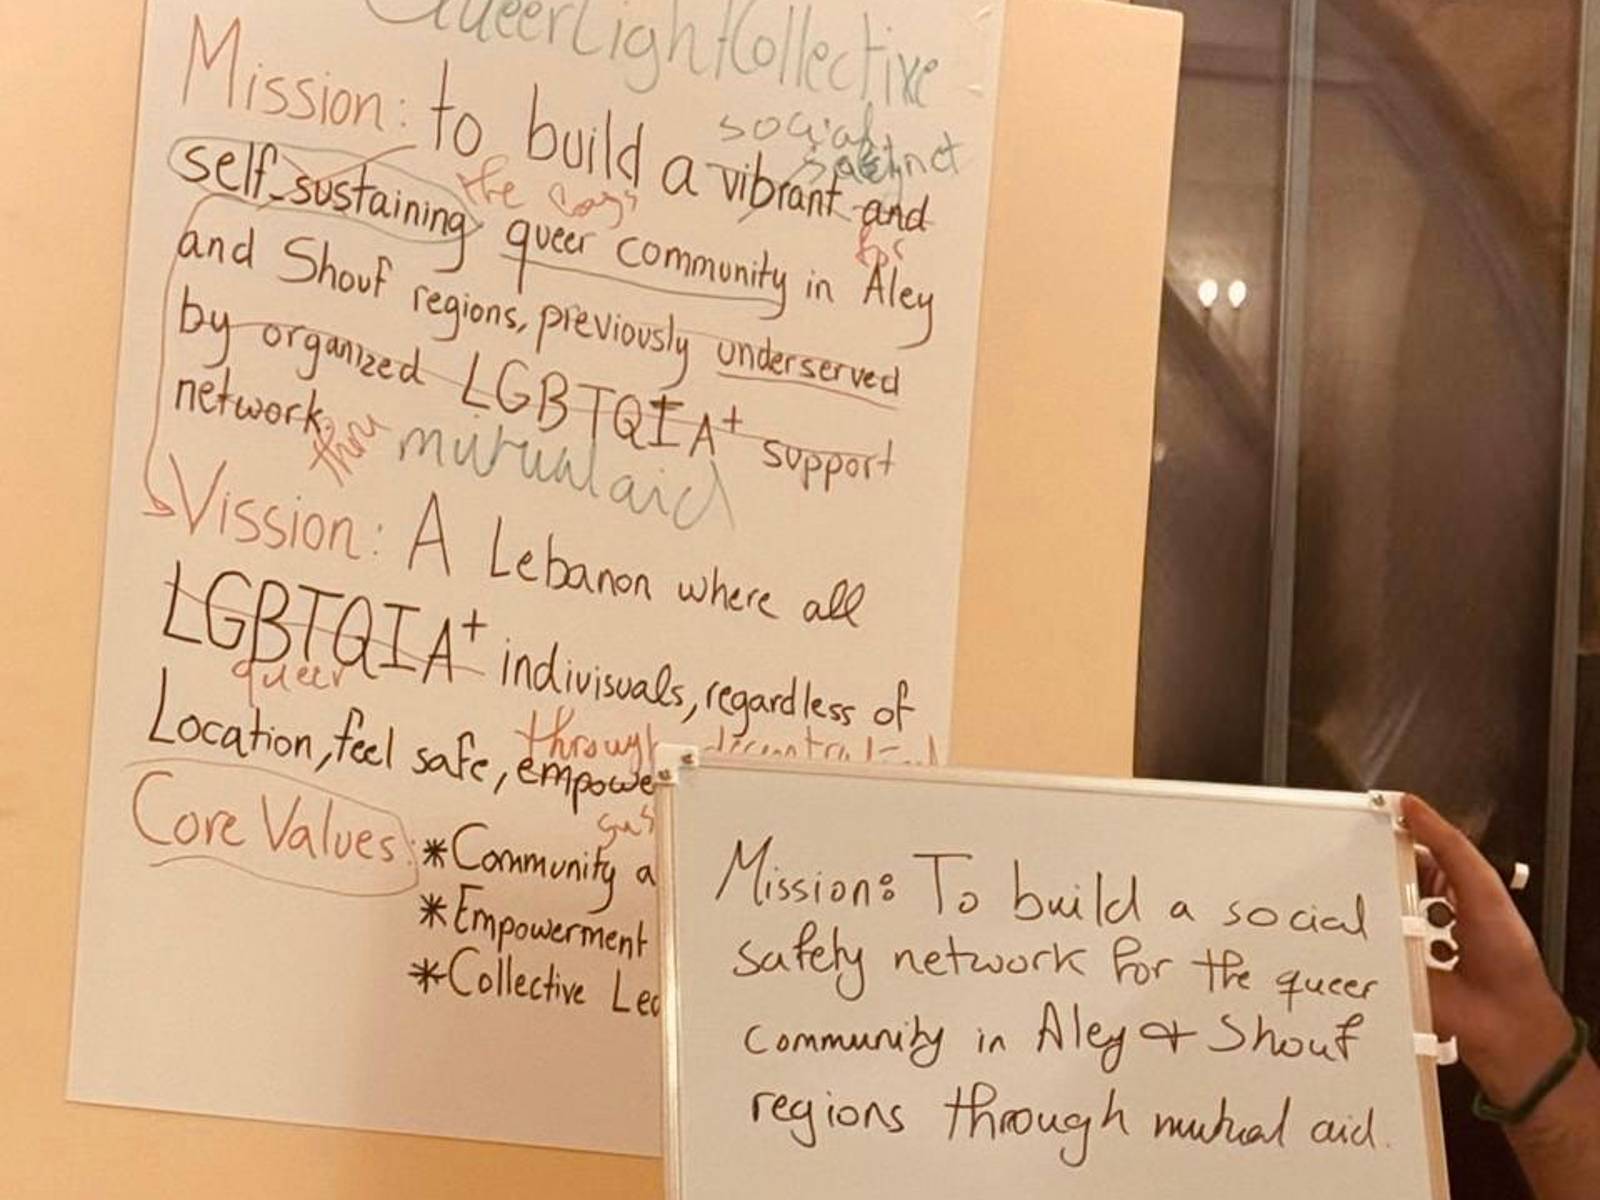 QueerLightCollective
social
safety net
Mission: to build a vibrant and
self-sustaining queer community in Aley
the
for
and Shouf regions, previously underserved
by organized LGBTQIA+ support
network.
thru mutual aid
Vission: A Lebanon where all
LGBTQIA+ indivisuals, regardless of
queer
Location, feel safe, empowe
through
Core Values: *Community a
*Empowerment
*Collective Lea
Mission: To build a social
safety network for the queer
community in Aley & Shouf
regions through mutual aid.